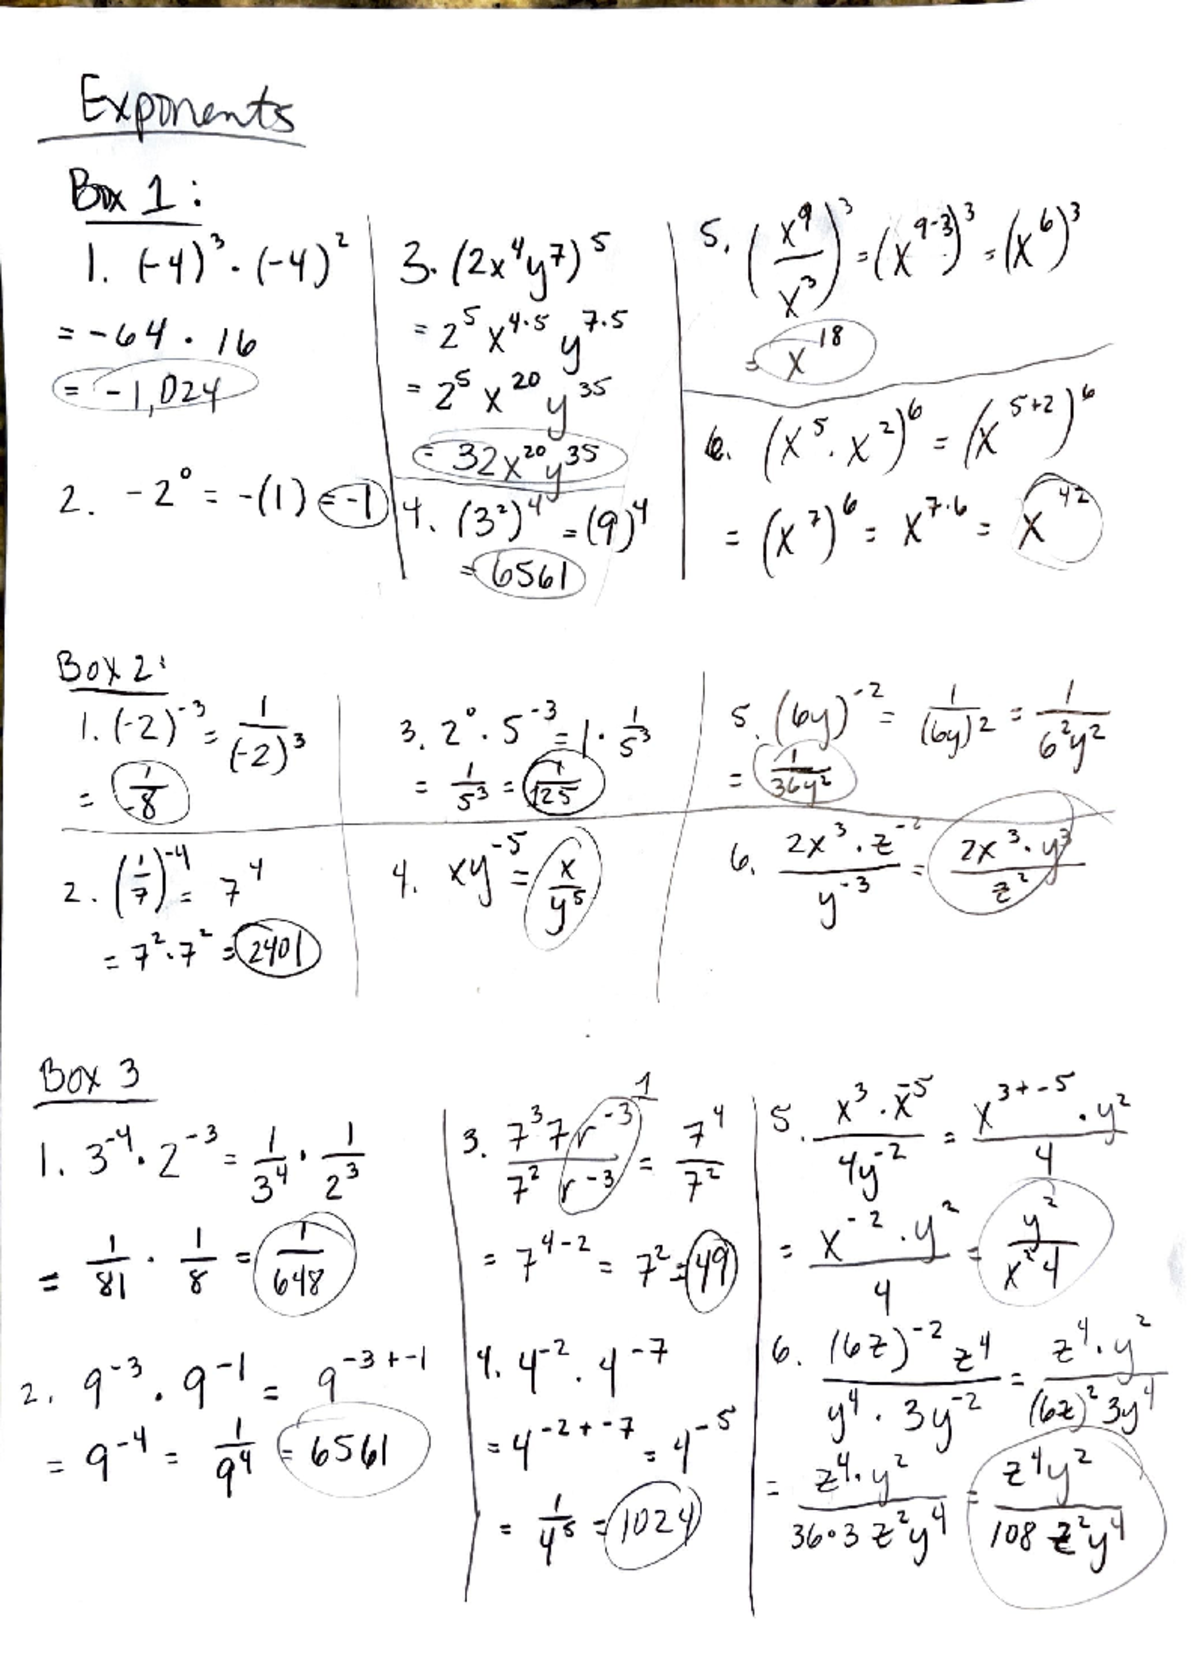 Exponents
Box 1:
1. (-4)³ · (-4)²
= -64 · 16
= -1,024
2. -2⁰ = -(1) = -1
3. (2x⁴y⁷)⁵
= 2⁵ x⁴·⁵ y⁷·⁵
= 2⁵ x²⁰ y³⁵
= 32x²⁰y³⁵
4. (3²)⁴ = (9)⁴
= 6561
5. (x⁹/x³)³ = (x⁹⁻³)³ = (x⁶)³
= x¹⁸
6. (x⁵ · x²)⁶ = (x⁵⁺²)⁶
= (x⁷)⁶ = x⁷·⁶ = x⁴²
Box 2:
1. (-2)⁻³ = 1/(-2)³
= 1/-8
2. (1/7)⁻⁴ = 7⁴
= 7² · 7² = 2401
3. 2⁰ · 5⁻³ = 1 · 1/5³
= 1/5³ = 1/125
4. xy⁻⁵ = x/y⁵
5. (6y)⁻² = 1/(6y)² = 1/6²y²
= 1/36y²
6. 2x³ · z⁻²/y⁻³ = 2x³ · y³/z²
Box 3
1. 3⁻⁴ · 2⁻³ = 1/3⁴ · 1/2³
= 1/81 · 1/8 = 1/648
2. 9⁻³ · 9⁻¹ = 9⁻³⁺⁻¹
= 9⁻⁴ = 1/9⁴ = 6561
3. 7³7r⁻³/7² r⁻³ 1 = 7⁴/7²
= 7⁴⁻² = 7² = 49
4. 4⁻² · 4⁻⁷
= 4⁻²⁺⁻⁷ = 4⁻⁵
= 1/4⁵ = 1024
5. x³ · x⁻⁵/4y⁻² = x³⁺⁻⁵ · y²/4
= x⁻² · y²/4 = y²/x²4
6. (6z)⁻² z⁴/y⁴ · 3y⁻² = z⁴ · y²/(6z)² 3y⁴
= z⁴ · y²/36·3 z²y⁴ = z⁴y²/108 z²y⁴